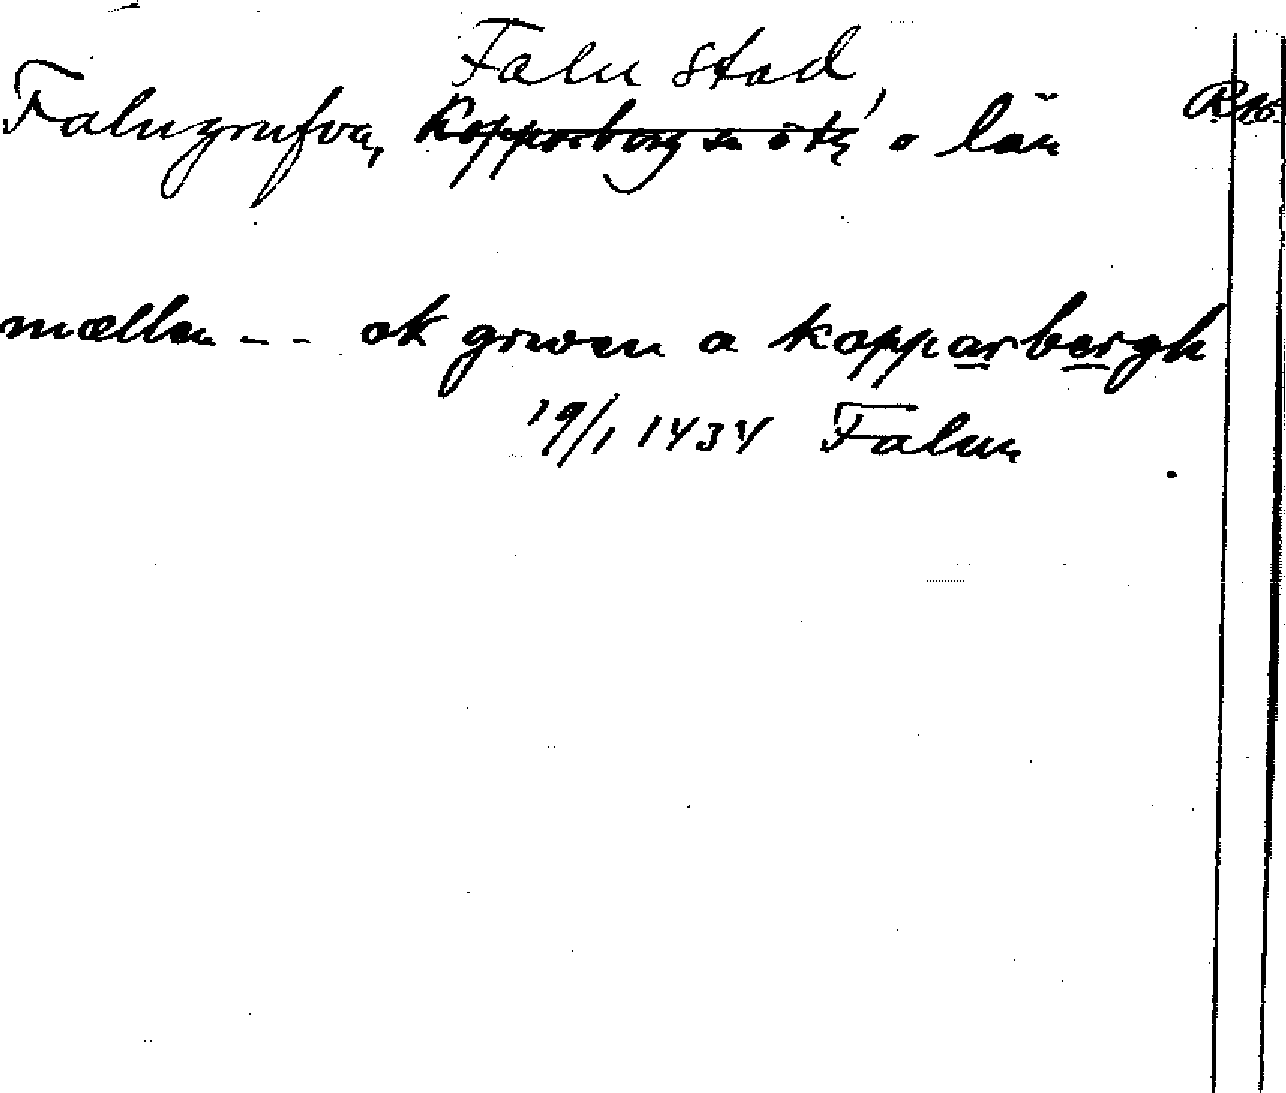 Falu stad
Falugrufva, Kopparbergs sn o län
mællan - - ok grwen a kopparbergh
19/1 1434 Falun